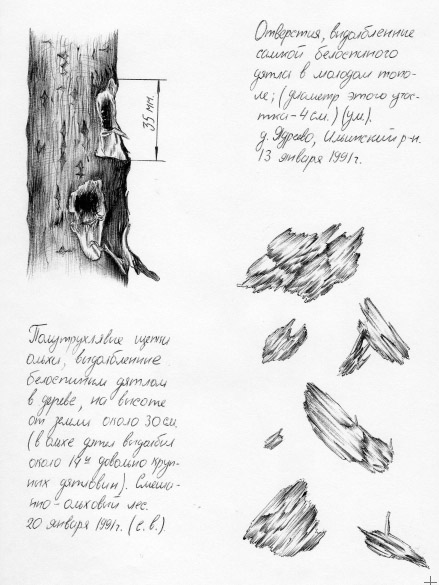 Отверстия, выдолбленные
самкой белоспинного
дятла в молодом топо-
ле; (диаметр этого учас-
тка - 4 см.) (ум.).
д. Ядреево, Ильинский р-н.
13 января 1991г.
35 мм.
Полутрухлявые щепки
ольхи, выдолбленные
белоспинным дятлом
в дереве, на высоте
от земли около 30 см.
(в ольхе дятел выдолбил
около довольно круп-
ных дятловин). Смеша-
нно-ольховый лес.
20 января 1991г. (е.в.)